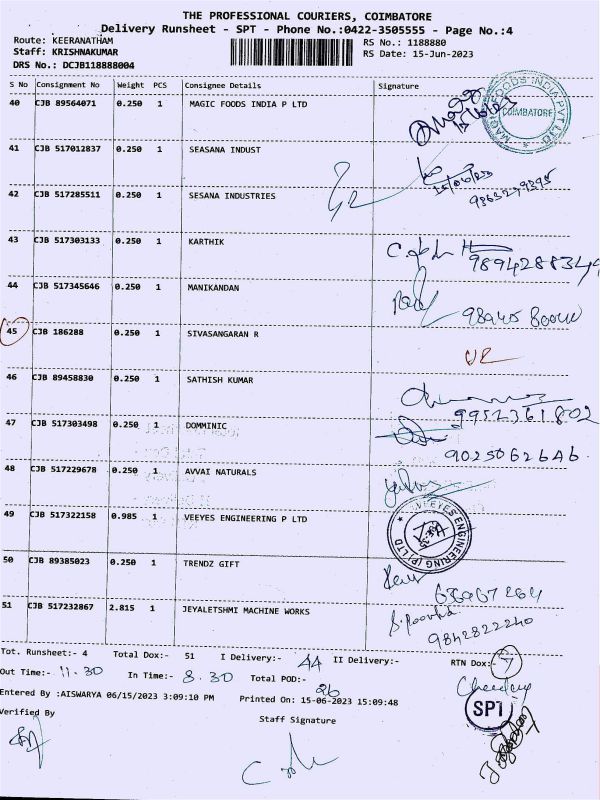 THE PROFESSIONAL COURIERS, COIMBATORE
Delivery Runsheet - SPT - Phone No.:0422-3505555 - Page No.:4
Route: KEERANATHAM RS No.: 1188880
Staff: KRISHNAKUMAR RS Date: 15-Jun-2023
DRS No.: DCJB118888004
S No Consignment No Weight PCS Consignee Details Signature
40 CJB 89564071 0.250 1 MAGIC FOODS INDIA P LTD 15/6/23 MAGIC FOODS INDIA PVT LTD COIMBATORE
41 CJB 517012837 0.250 1 SEASANA INDUST 15/06/23
42 CJB 517285511 0.250 1 SESANA INDUSTRIES 9863279395
43 CJB 517303133 0.250 1 KARTHIK 9894288349
44 CJB 517345646 0.250 1 MANIKANDAN
45 CJB 186288 0.250 1 SIVASANGARAN R
46 CJB 89458830 0.250 1 SATHISH KUMAR 9952361802
47 CJB 517303498 0.250 1 DOMMINIC 9025062646
48 CJB 517229678 0.250 1 AVVAI NATURALS
49 CJB 517322158 0.985 1 VEEYES ENGINEERING P LTD VEEYES ENGINEERING (P) LTD
50 CJB 89385023 0.250 1 TRENDZ GIFT
51 CJB 517232867 2.815 1 JEYALETSHMI MACHINE WORKS 9842822240
Tot. Runsheet:- 4 Total Dox:- 51 I Delivery:- 44 II Delivery:- RTN Dox:- 7
Out Time:- 11.30 In Time:- 8.30 Total POD:- 26
Entered By :AISWARYA 06/15/2023 3:09:10 PM Printed On: 15-06-2023 15:09:48
SPT
Verified By Staff Signature